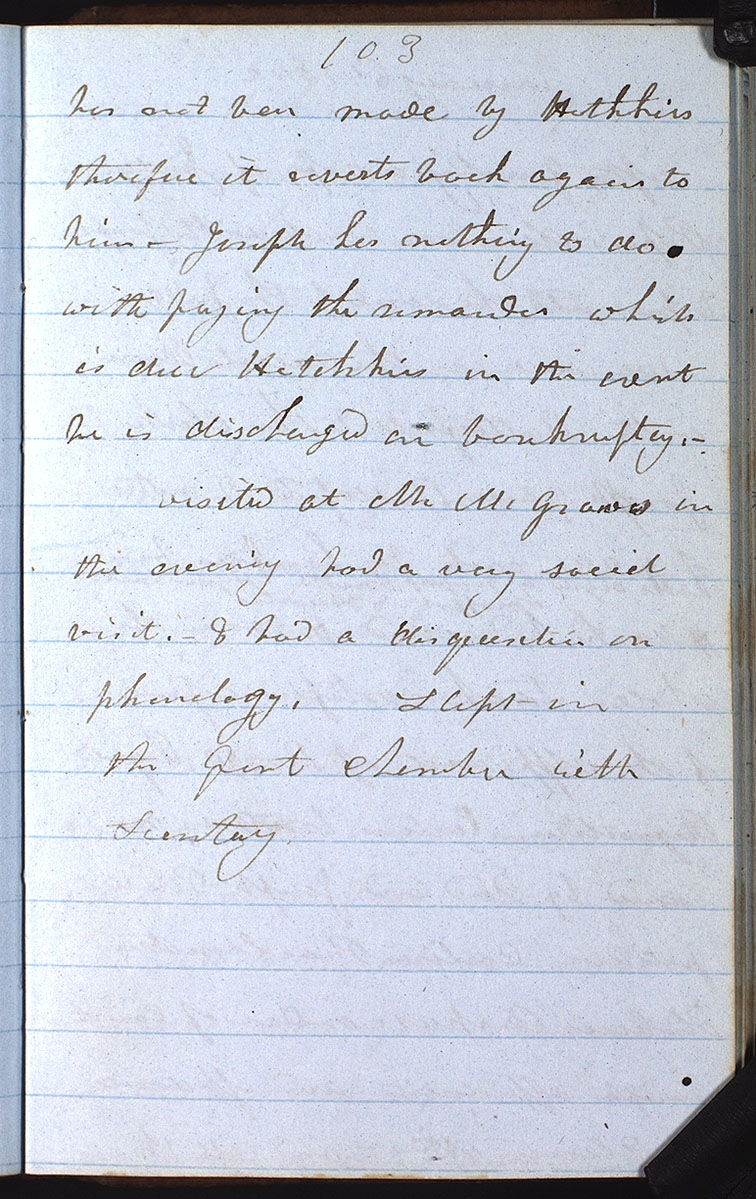 103
has not ben made by Hothkiss
therefue it reverts back again to
him – Joseph has nothing to do
with paying the remander which
is due Hotchkiss in the event
he is discharged on bankruptcy. –
visited at Mr McGraws in
the evening had a very social
visit. – I had a disqusetin on
phenology. Slept in
the front chamber with
Secretary.